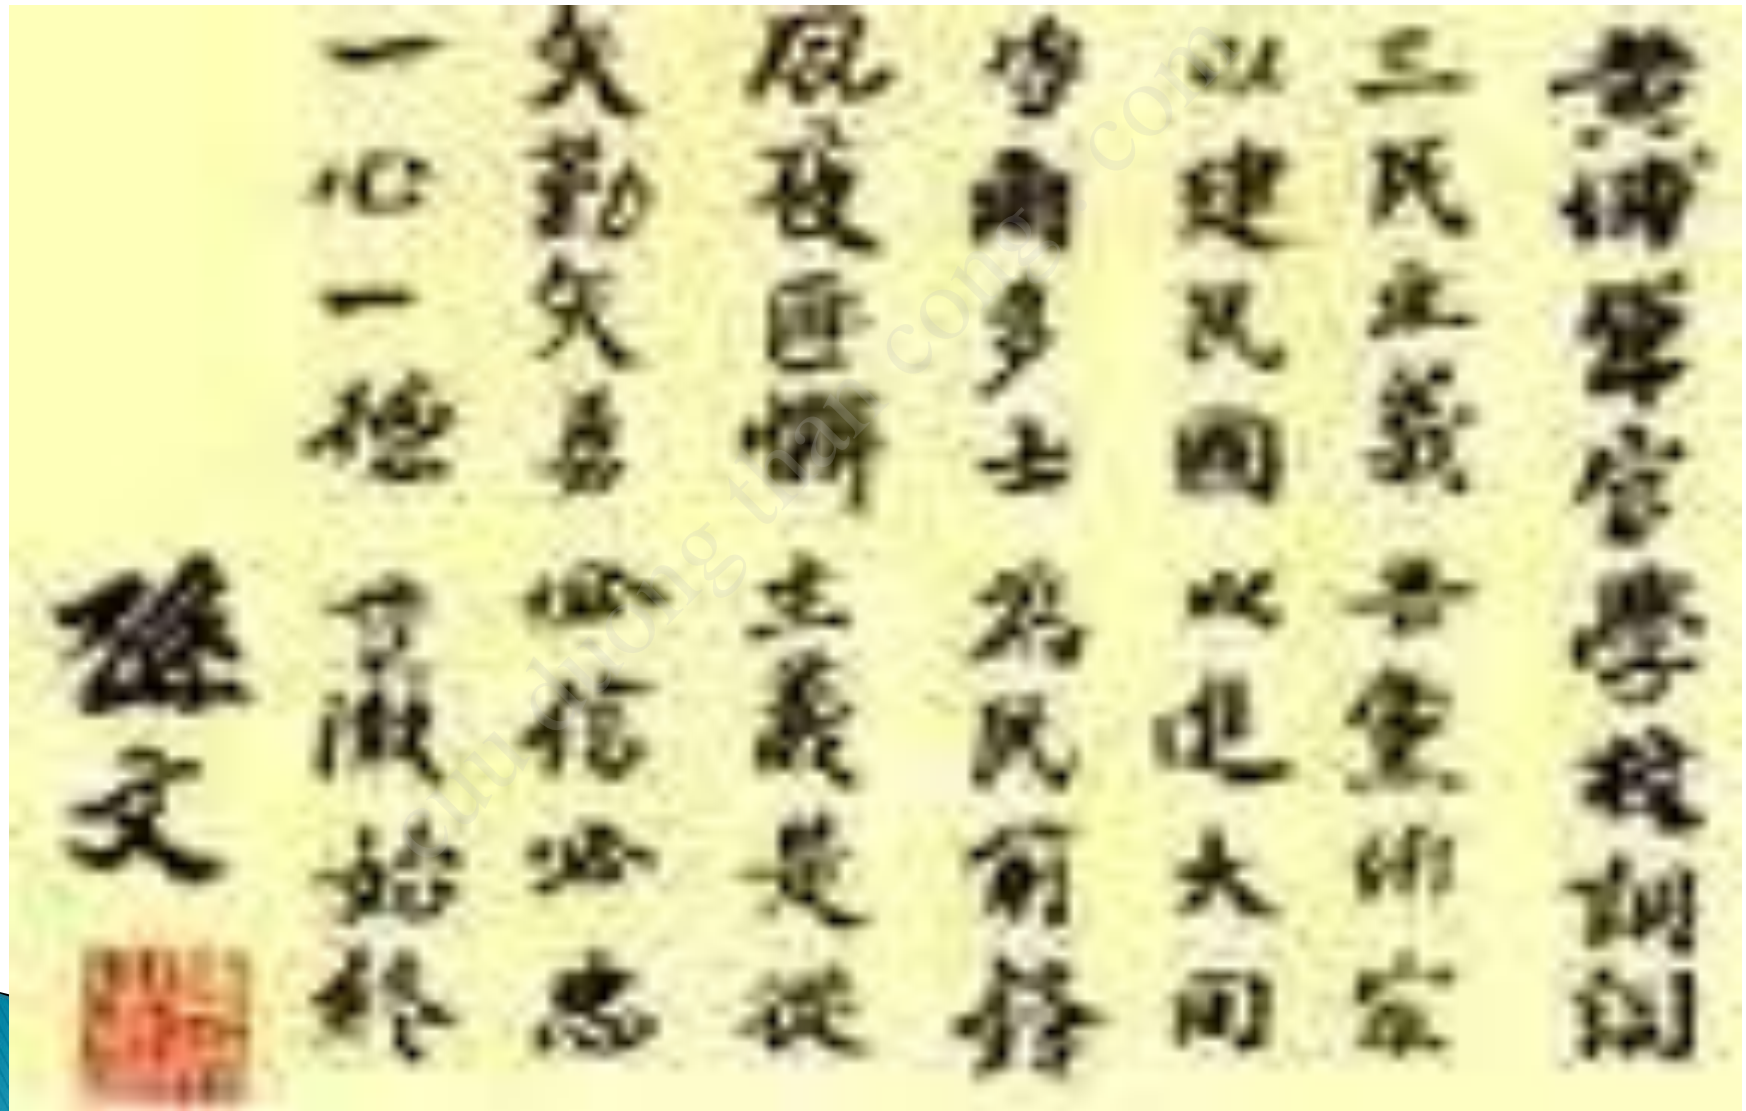 黃埔軍官學校訓詞
三民主義吾黨所宗
以建民國以進大同
咨爾多士為民前鋒
夙夜匪懈主義是從
矢勤矢勇必信必忠
一心一德貫徹始終
孫文
cuu duong than cong . com